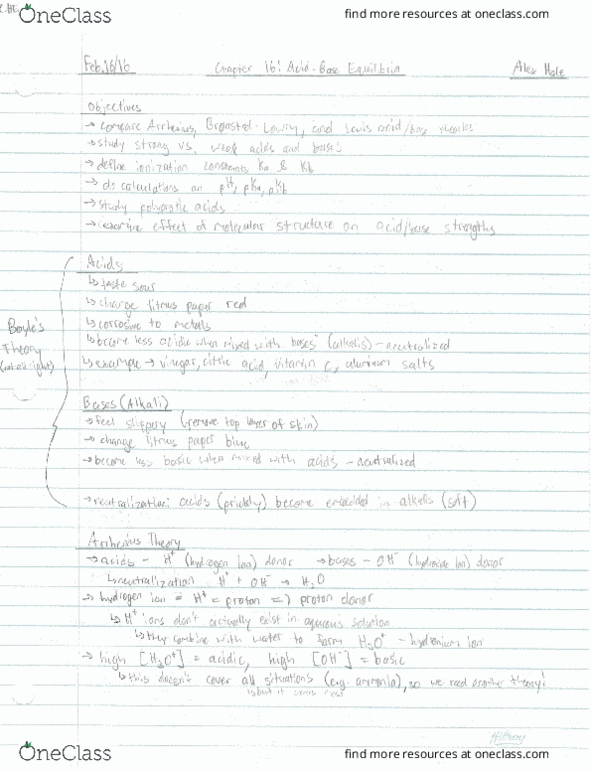 OneClass
find more resources at oneclass.com
Feb.16/16 Chapter 16: Acid-Base Equilibria Alex Hole
Objectives
→ compare Arrhenius, Bronsted-Lowry, and Lewis acid/base theories
→ study strong vs. weak acids and bases
→ define ionization constants Ka & Kb
→ do calculations on pH, pKa, pKb
→ study polyprotic acids
→ examine effect of molecular structure on acid/base strengths
Acids
↳ taste sour
↳ change litmus paper red
↳ corrosive to metals
↳ become less acidic when mixed with bases (alkalis) - neutralized
↳ example → vinegar, citric acid, vitamin C, aluminum salts
Boyle's
Theory
Bases (Alkali)
→ feel slippery (remove top layer of skin)
→ change litmus paper blue
→ become less basic when mixed with acids - neutralized
→ neutralization: acids (prickly) become embedded in alkalis (soft)
Arrhenius Theory
→ acids - H⁺ (hydrogen ion) donor → bases - OH⁻ (hydroxide ion) donor
↳ neutralization H⁺ + OH⁻ → H₂O
→ hydrogen ion = H⁺ = proton => proton donor
↳ H⁺ ions don't actually exist in aqueous solution
↳ they combine with water to form H₃O⁺ - hydronium ion
→ high [H₃O⁺] = acidic, high [OH⁻] = basic
↳ this doesn't cover all situations (e.g. ammonia), so we need another theory!
OneClass
find more resources at oneclass.com